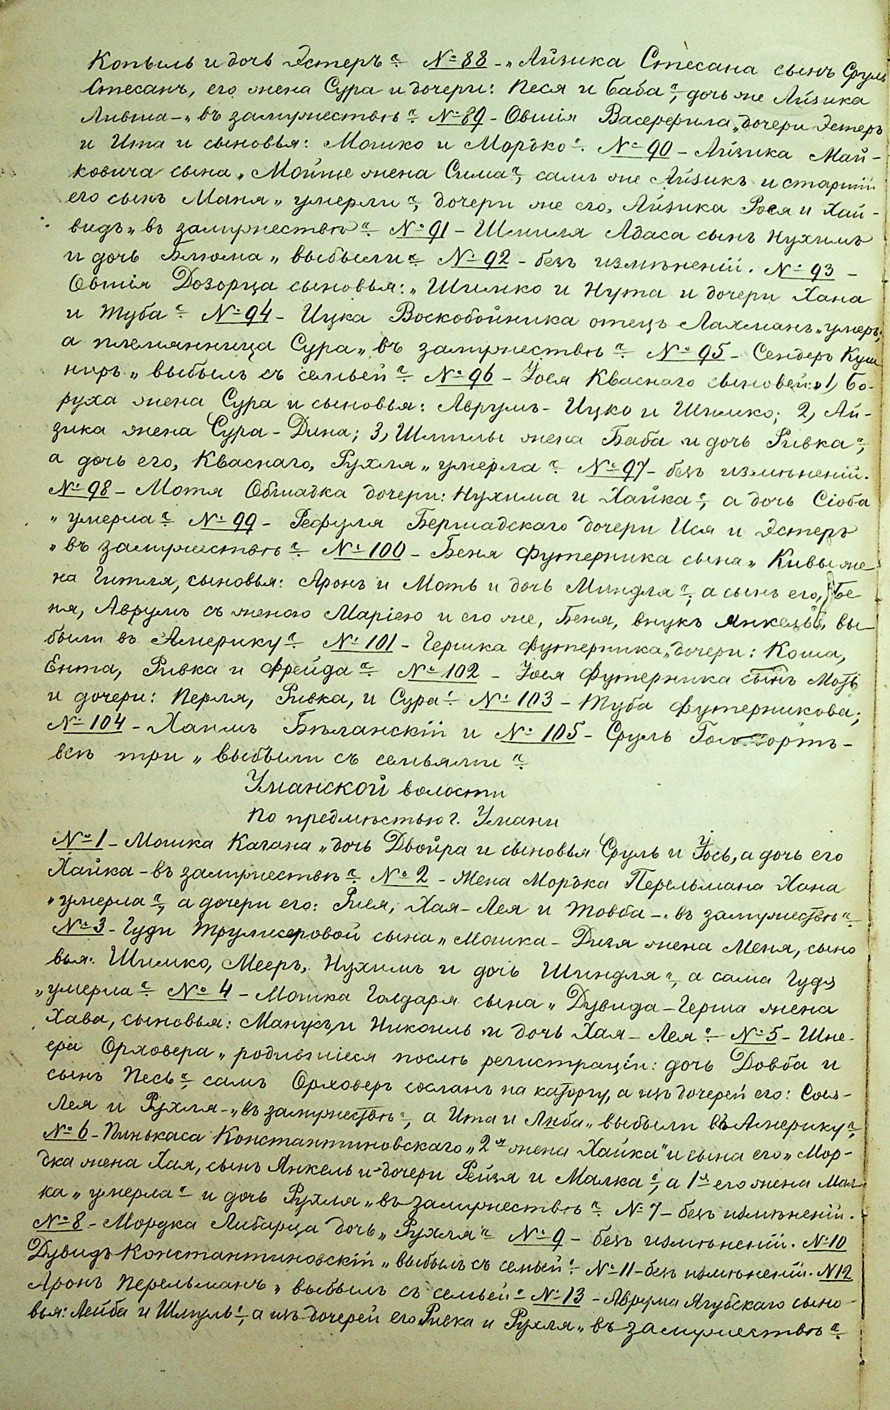 Копыль и дочь Эстеръ". № 88 - "Айзика Стесана сынъ Сруль
Стесанъ, его жена Сура и дочери: Песя и Баба", дочь же Айзика
Ливша - "въ замужествѣ". № 89 - Овшія "дочери Эстеръ
и Ита и сыновья: Мошко и Моръко". № 90 - Айзика Май-
ковича сына "Мойше жена Сима", самъ же Айзикъ и старшій
его сынъ Маня "умерли", дочери же его, Айзика Рося и Хай-
видъ "въ замужествѣ". № 91 - Шмиля Адаса сынъ Нухимъ
и дочь Блюма "выбыли". № 92 - безъ измѣненій. № 93 -
Овшія Дозорца сыновья: "Шимко и Нута и дочери Хана
и Туба". № 94 - Ицка Воскобойника отецъ Лахманъ "умеръ,"
а племянница Сура "въ замужествѣ". № 95 - Сендеръ Куш
ниръ "выбылъ съ семьей". № 96 - Іося Кваснаго сыновей: "1, Бо-
руха жена Сура и сыновья: Аврумъ-Ицко и Шимко; 2, Ай-
зика жена Сура-Дина; 3, Шмилы жена Баба и дочь Ривка",
а дочь его, Кваснаго, Рухля "умерла". № 97 - безъ измѣненій.
№ 98 - Мотя Обшадка дочери: Нухима и Хайка", а дочь Сіоба
"умерла". № 99 - Рефуля Бершадскаго дочери Ися и Эстеръ
"въ замужествѣ". № 100 - Беня Футерника сына "Кивы же-
на Гитля, сыновья: Аронъ и Моть и дочь Миндля", а сынъ его, Бе
ня, Аврумъ съ женою Маріею и его же, Беня, внукъ Янкель, вы-
были въ Америку". № 101 - Гершка Футерника "дочери: Коша,
Ента, Ривка и Фрейда". № 102 - Іося Футерника сынъ Моть
и дочери: Перля, Ривка, и Сура". № 103 - Туба Футерникова;
№ 104 - Хаимъ Бѣланскій и № 105 - Сруль
всѣ три "выбыли съ семьями".
Уманской волости
по предмѣстью г. Умани
№ 1 - Мошка Кагана "дочь Двойра и сыновья Сруль и Іось, а дочь его
Хайка - въ замужествѣ". № 2 - Жена Моръка Перельмана Хана
"умерла", а дочери его: Рися, Хая-Лея и Товба - "въ замужествѣ".
№ 3 - Гуди сына "Мошка-Дигя жена Меня, сыно
вья: Шимко, Мееръ, Нухимъ и дочь Шиндля", а сама Гудя
"умерла". № 4 - Мошка Голдаря сына "Дувида-Герша жена
Хава, сыновья: Манусъ и Никоиль и дочь Хая-Лея". № 5 - Шне-
ера Орховера "родившіеся послѣ регистраціи: дочь Довба и
сынъ Песь", самъ Орховеръ сосланъ на каторгу, а изъ дочерей его: Сося-
Лея и Рухля - "въ замужествѣ", а Ита и Люба "выбыли въ Америку".
№ 6 - Пинькаса Константиновскаго "2я жена Хайка" и сына его "Мор-
дка жена Хая, сынъ Янкель и дочери Рейзя и Малка", а 1я его жена Мал-
ка "умерла" и дочь Рухля "въ замужествѣ". № 7 - безъ измѣненій.
№ 8 - Мордка Либарца дочь "Рухля". № 9 - безъ измѣненій. № 10
Дувидъ Константиновскій "выбылъ съ семьей". № 11 - безъ измѣненій. № 12
Аронъ Перельманъ "выбылъ съ семьей". № 13 - Аврума Ягубскаго сыно-
вья: Лейба и Шмуль", а изъ дочерей его Ривка и Рухля "въ замужествѣ".